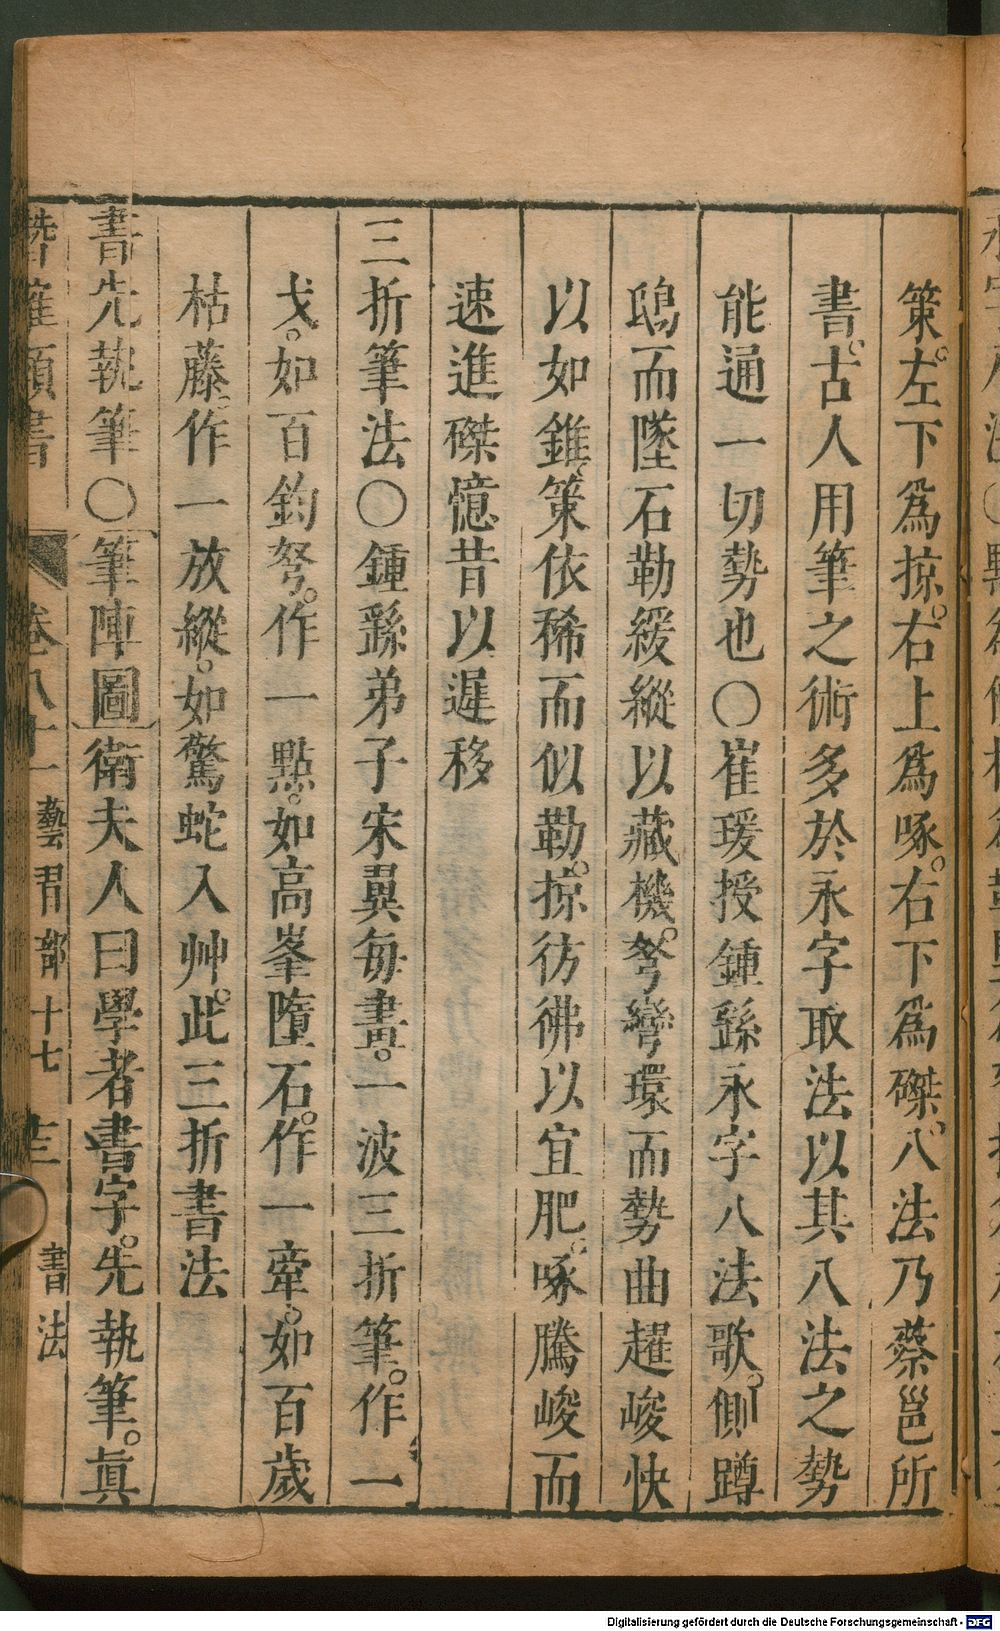 策。左下爲掠。右上爲啄。右下爲磔。八法乃蔡邕所
書。古人用筆之術多於永字取法以其八法之勢
能通一切勢也〇崔瑗授鍾繇永字八法歌。側蹲
鴟而墜石勒緩縱以藏機。弩彎環而勢曲趯峻快
以如錐策依稀而似勒。掠彷彿以宜肥。啄騰峻而
速進磔憶昔以遲移
三折筆法〇鍾繇弟子宋翼每畫。一波三折筆。作一
戈。如百鈞弩。作一點。如高峯墮石。作一牽。如百歲
枯藤。作一放縱。如驚蛇入艸。此三折書法
書先執筆〇筆陣圖衛夫人曰學者書字。先執筆。眞
卷八十一 藝習部十七 書法
Digitalisierung gefördert durch die Deutsche Forschungsgemeinschaft - DFG